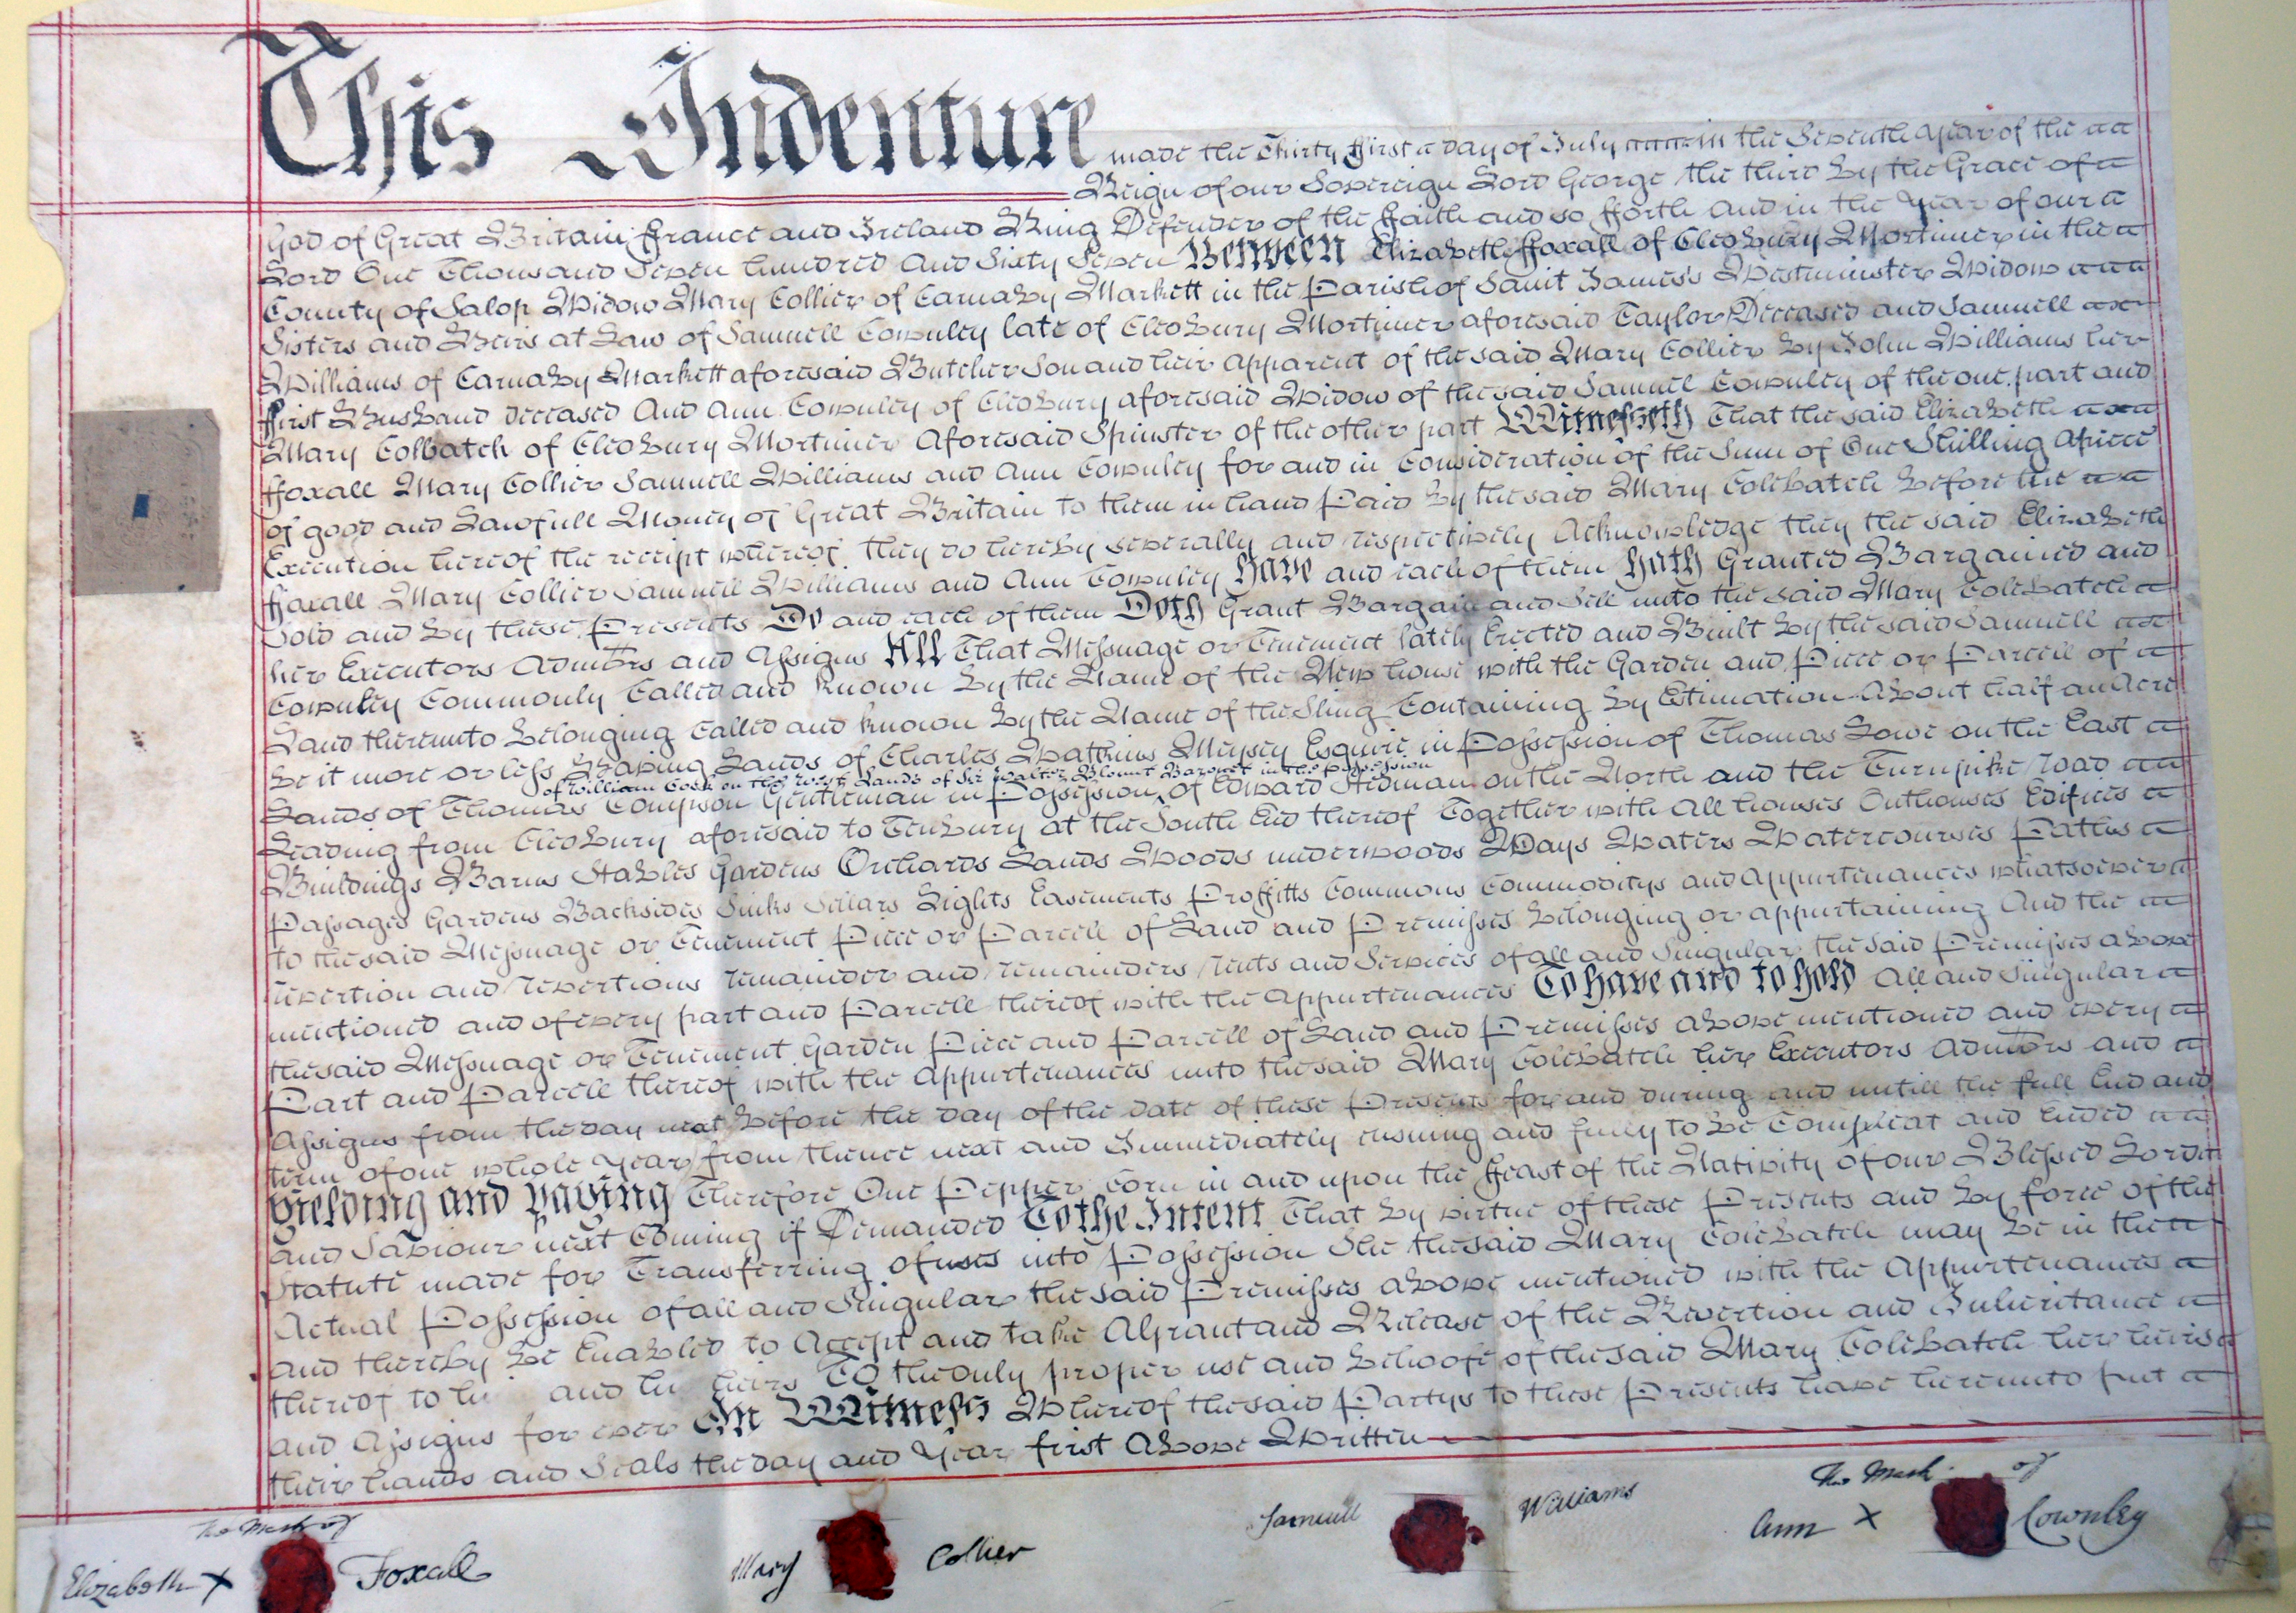 This Indenture made the Thirty First day of July in the Seventh Year of the
Reign of our Sovereign Lord George the third By the Grace of
God of Great Britain, ffrance and Ireland King Defender of the ffaith and so fforth And in the Year of our
Lord One Thousand Seven hundred And Sixty Seven Between Elizabeth ffoxall of Cleobury Mortimer in the
County of Salop Widow Mary Collier of Carnaby Markett in the Parish of Saint James's Westminster Widow
Sisters and Heirs at Law of Samuell Cownley late of Cleobury Mortimer aforesaid Taylor Deceased and Samuell
Williams of Carnaby Markett aforesaid Butcher Son and heir Apparent of the said Mary Collier By John Williams her
first Husband Deceased And Ann Cownley of Cleobury aforesaid Widow of the said Samuel Cownley of the one part and
Mary Colbatch of Cleobury Mortimer Aforesaid Spinster of the other part Witnesseth That the said Elizabeth
ffoxall Mary Collier Samuell Williams and Ann Cownley for and in Consideration of the Sum of One Shilling Apiece
of good and Lawfull Money of Great Britain to them in hand Paid By the said Mary Colebatch Before the
Execution hereof the receipt whereof they do hereby severally and respectively Acknowledge they the said Elizabeth
ffoxall Mary Collier Samuell Williams and Ann Cownley Have and each of them Hath Granted Bargained and
Sold and By these Presents Do and each of them Doth Grant Bargain and Sell unto the said Mary Colebatch
her Executors Admors and Assigns All That Messuage or Tenement lately Erected and Built By the said Samuell
Cownley Commonly Called and known By the Name of the New house with the Garden and Piece or Parcell of
Land thereunto Belonging Called and known By the Name of the Sling Containing By Estimation About half an Acre
be it more or less Having Lands of Charles Watkins Meysey Esquire in Possession of Thomas Lowe on the East
of William Cook on the West Lands of Sir Walter Blount Baronet in the possession
Lands of Thomas Compson Gentleman in Possession of Edward Hedman on the North and the Turnpike road
Leading from Cleobury aforesaid to Tenbury at the South End thereof Together with All houses Outhouses Edifices
Buildings Barns Stables Gardens Orchards Lands Woods underwoods Ways Waters Watercourses Paths
Passages Gardens Backsides Sinks Sellars Lights Easements Proffitts Commons Commoditys and Appurtenances whatsoever
to the said Messuage or Tenement Piece or Parcell of Land and Premisses Belonging or appurtaining And the
revertion and revertions remainder and remainders rents and Services of all and Singular the said Premisses above
mentioned and of every part and Parcell thereof with the Appurtenances To have and to hold All and Singular
the said Messuage or Tenement Garden Piece and Parcell of Land and Premisses above mentioned and every
Part and Parcell thereof with the Appurtenances unto the said Mary Colebatch her Executors Admors and
Assigns from the day next Before the day of the date of these Presents for and during and untill the full End and
term of one whole Year from thence next and Immediately ensuing and fully to be Compleat and Ended
Yielding and Paying Therefore One Pepper corn in and upon the ffeast of the Nativity of our Blessed Lord
and Saviour next Coming if Demanded To the Intent That By virtue of these Presents and By force of the
Statute made for Transferring of uses into Possession She the said Mary Colebatch may be in the
Actual Possession of all and Singular the said Premisses above mentioned with the Appurtenances
and thereby be Enabled to Accept and take A Grant and Release of the Revertion and Inheritance
thereof to and heirs To the Only proper use and behoofe of the said Mary Colebatch her heirs
and Assigns for ever In Witness Whereof the said Partys to these Presents have hereunto put
their hands and Seals the day and Year first Above Written
The Mark of
Elizabeth X Foxall
Mary Collier
Samuell Williams
The Mark of
Ann X Cownley